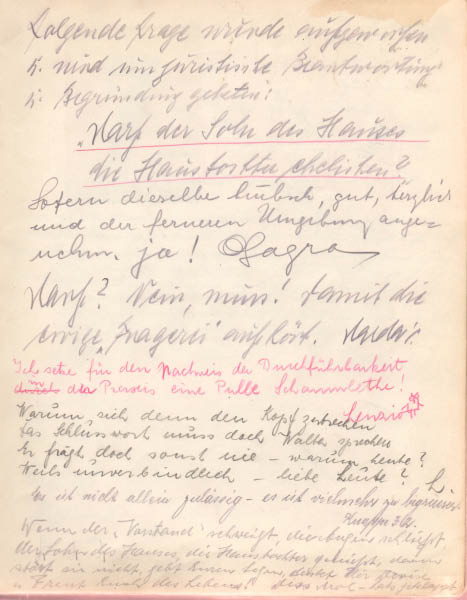 Folgende Frage wurde aufgeworfen
u. wird um juristische Beantwortung
u. Begründung gebeten:
"Darf der Sohn des Hauses
die Haustochter ehelichen?
Sofern dieselbe hübsch, gut, herzlich
und der ferneren Umgebung ange-
nehm, ja!
Darf? Nein, muss! Damit die
ewige "Fragerei" aufhört.
Ich setze für den Nachweis der Durchführbarkeit
durch die Praxis eine Pulle
Warum sich denn den Kopf zerbrechen
Das Schlusswort muss doch Walter sprechen
Er frägt doch sonst nie – warum heute?
Weils unverbindlich – liebe Leute!
Es ist nicht allein zulässig – es ist vielmehr zu begrüssen.
Wenn der "Vorstand" schweigt,
Der Sohn des Hauses, die Haustochter
stört sie nicht, gebt Euren Segen,
"Freut Euch des Lebens!"